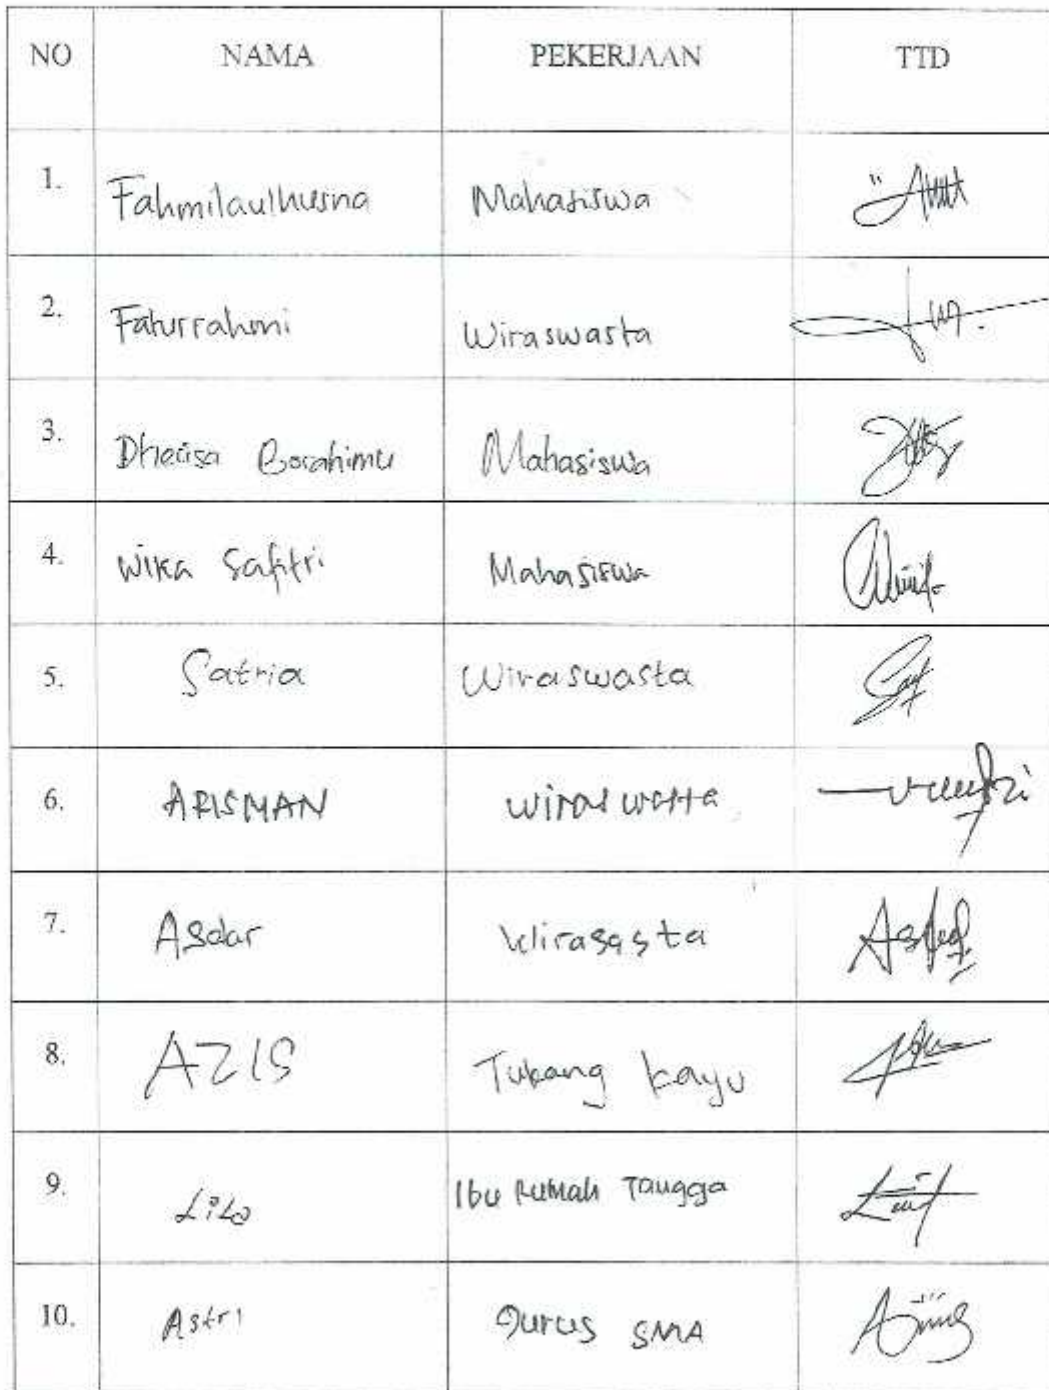 NO NAMA PEKERJAAN TTD
1. Fahmilaulhusna Mahasiswa
2. Faturrahmi Wiraswasta
3. Mahasiswa
4. Wika Safitri Mahasiswa
5. Satria Wiraswasta
6. ARISMAN wiraswasta
7. Asdar Wirasasta
8. AZIS Tukang kayu
9. Lila Ibu Rumah Tangga
10. Astri Gurus SMA